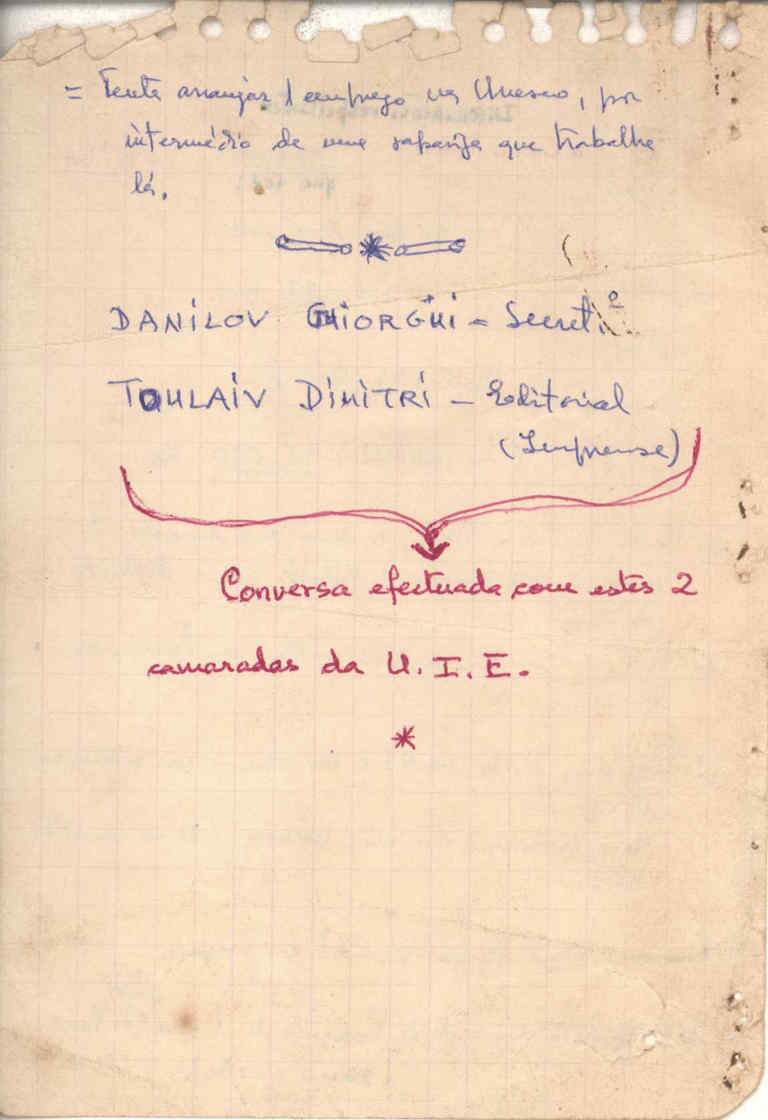 = Tenta arranjar 1 emprego na Unesco, por
intermédio de uma rapariga que trabalha
lá.
DANILOV GHIORGHI – Secret.º
DIMITRI – Editorial
(Imprensa)
Conversa efectuada com estes 2
camaradas da U.I.E.
*